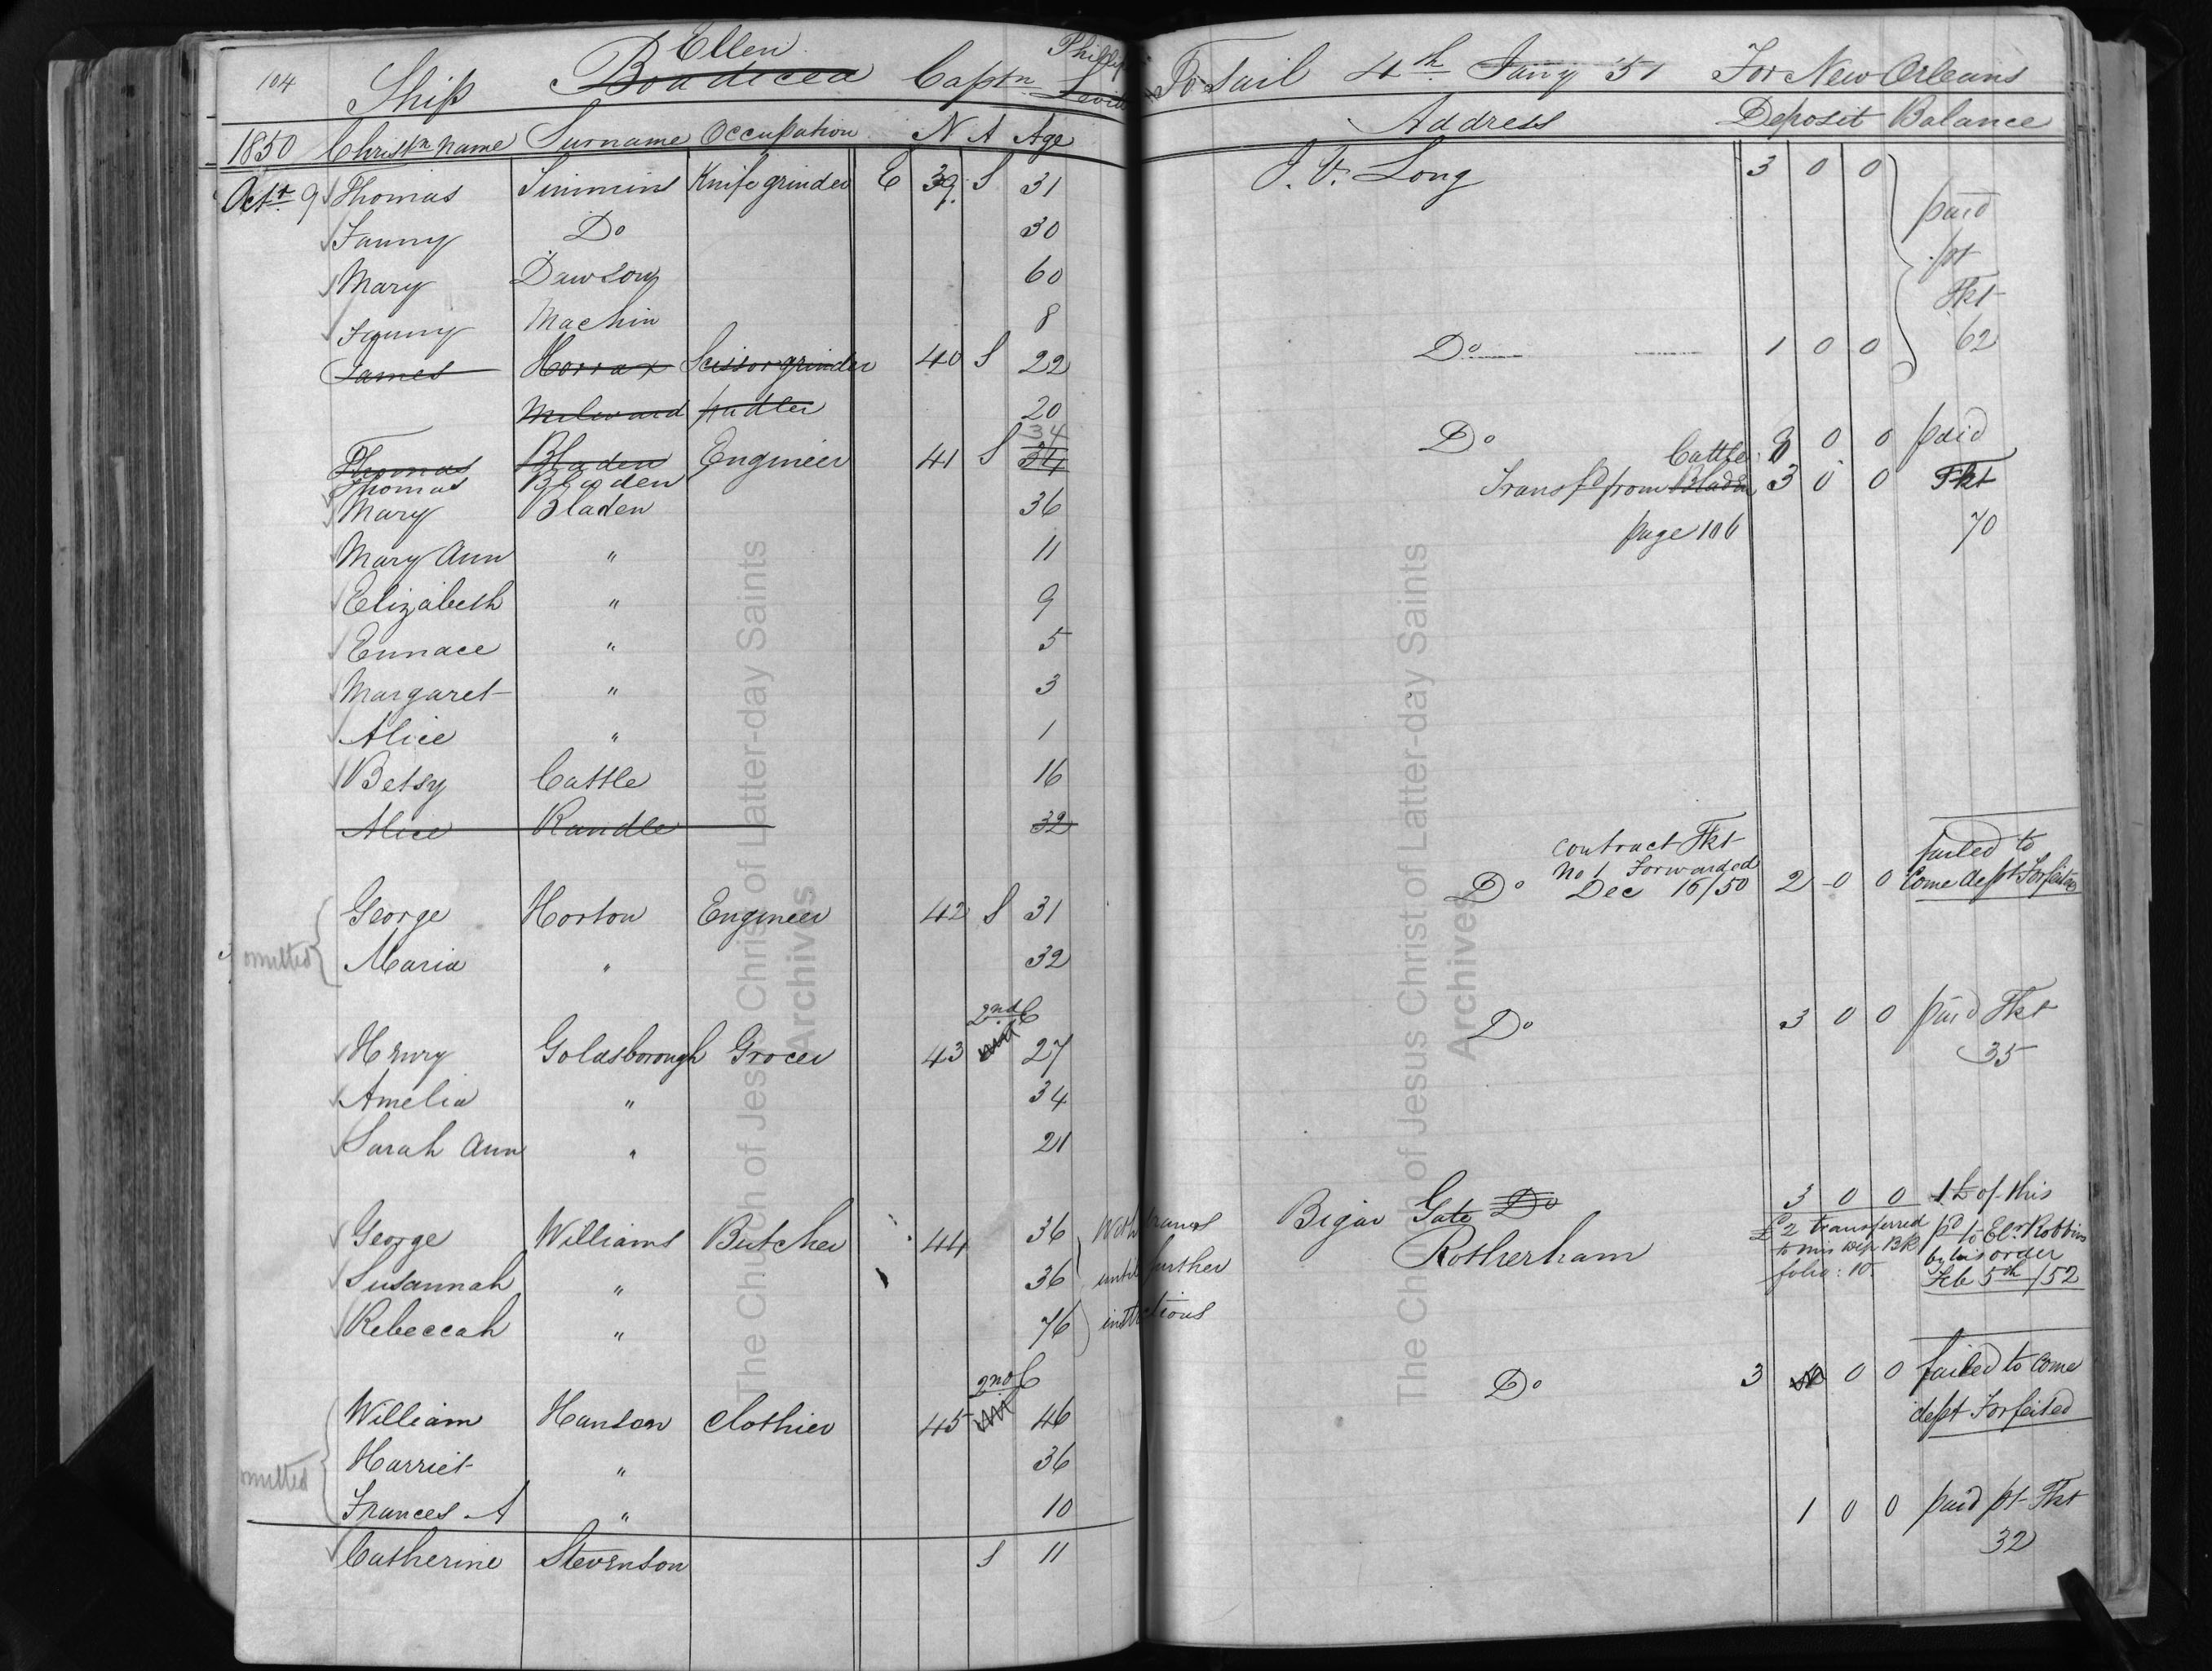 104 Ship Ellen Boadicea Captn Phillips To Sail 4th Jany 51 For New Orleans
1850 Christn name Surname Occupation N A Age Address Deposit Balance
Octr 9 Thomas Simmins Knife grinder E 39 S 31 J. V. Long 3 0 0 paid
Fanny Do 30 pr
Mary Dawson 60 Tkt
Fanny Machin 8 62
James Horrax Scissor grinder 40 S 22 Do 1 0 0
Milward padler 20
34
Thomas Bladen Engineer 41 S 34 Do 8 0 0 paid
Thomas Bladen Transfd from Bladen Cattle 3 0 0 Tkt
Mary Bladen 36 page 106 70
Mary Ann " 11
Elizabeth " 9
Eunace " 5
Margaret " 3
Alice " 1
Betsy Cattle 16
Alice Randle 32
contract Tkt failed to
No 1 Forwarded
Do Dec 16/50 2 0 0 Come dept Forfeited
George Horton Engineer 42 S 31
omitted Maria " 32
2nd C Do 3 0 0 paid Tkt
Henry Goldsborough Grocer 43 27 35
Amelia " 34
Sarah Ann " 21
3 0 0 1£ of this
George Williams Butcher 44 36 With Bigar Gate Do £2 transferred pd to Elr Robbins
Rotherham to his Dep. BK by his order
Susannah " 36 until further folio: 10 Feb 5th /52
Rebeccah " 76
2nd C Do 3 0 0 failed to Come
William Hanson Clothier 45 46 dept Forfeited
Harriet " 36
omitted Frances A " 10 1 0 0 paid pr Tkt
Catherine Stevenson S 11 32
The Church of Jesus Christ of Latter-day Saints
Archives
The Church of Jesus Christ of Latter-day Saints
Archives